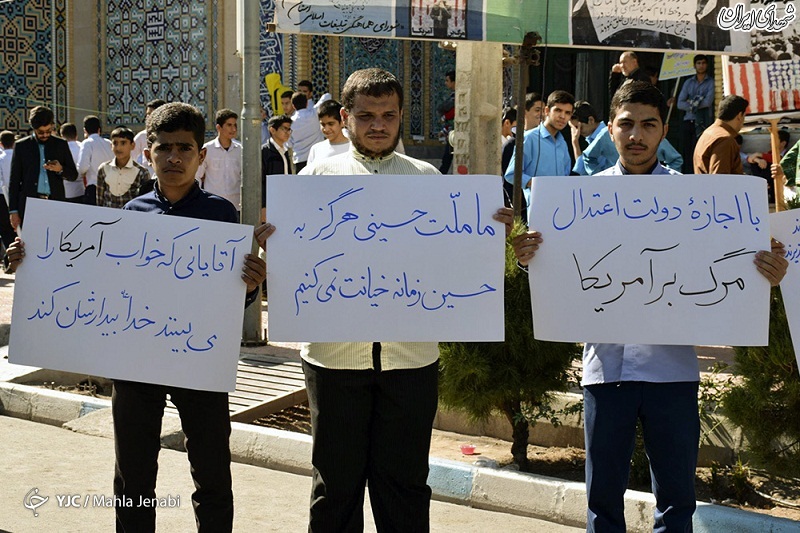 شهدای ایران
شورای هماهنگی تبلیغات اسلامی استان
با اجازهٔ دولت اعتدال
مرگ بر آمریکا
ما ملّت حسینی هرگز به
حسین زمانه خیانت نمی‌کنیم
آقایانی که خواب آمریکا را
می بینند خدا بیدارشان کند
YJC / Mahla Jenabi